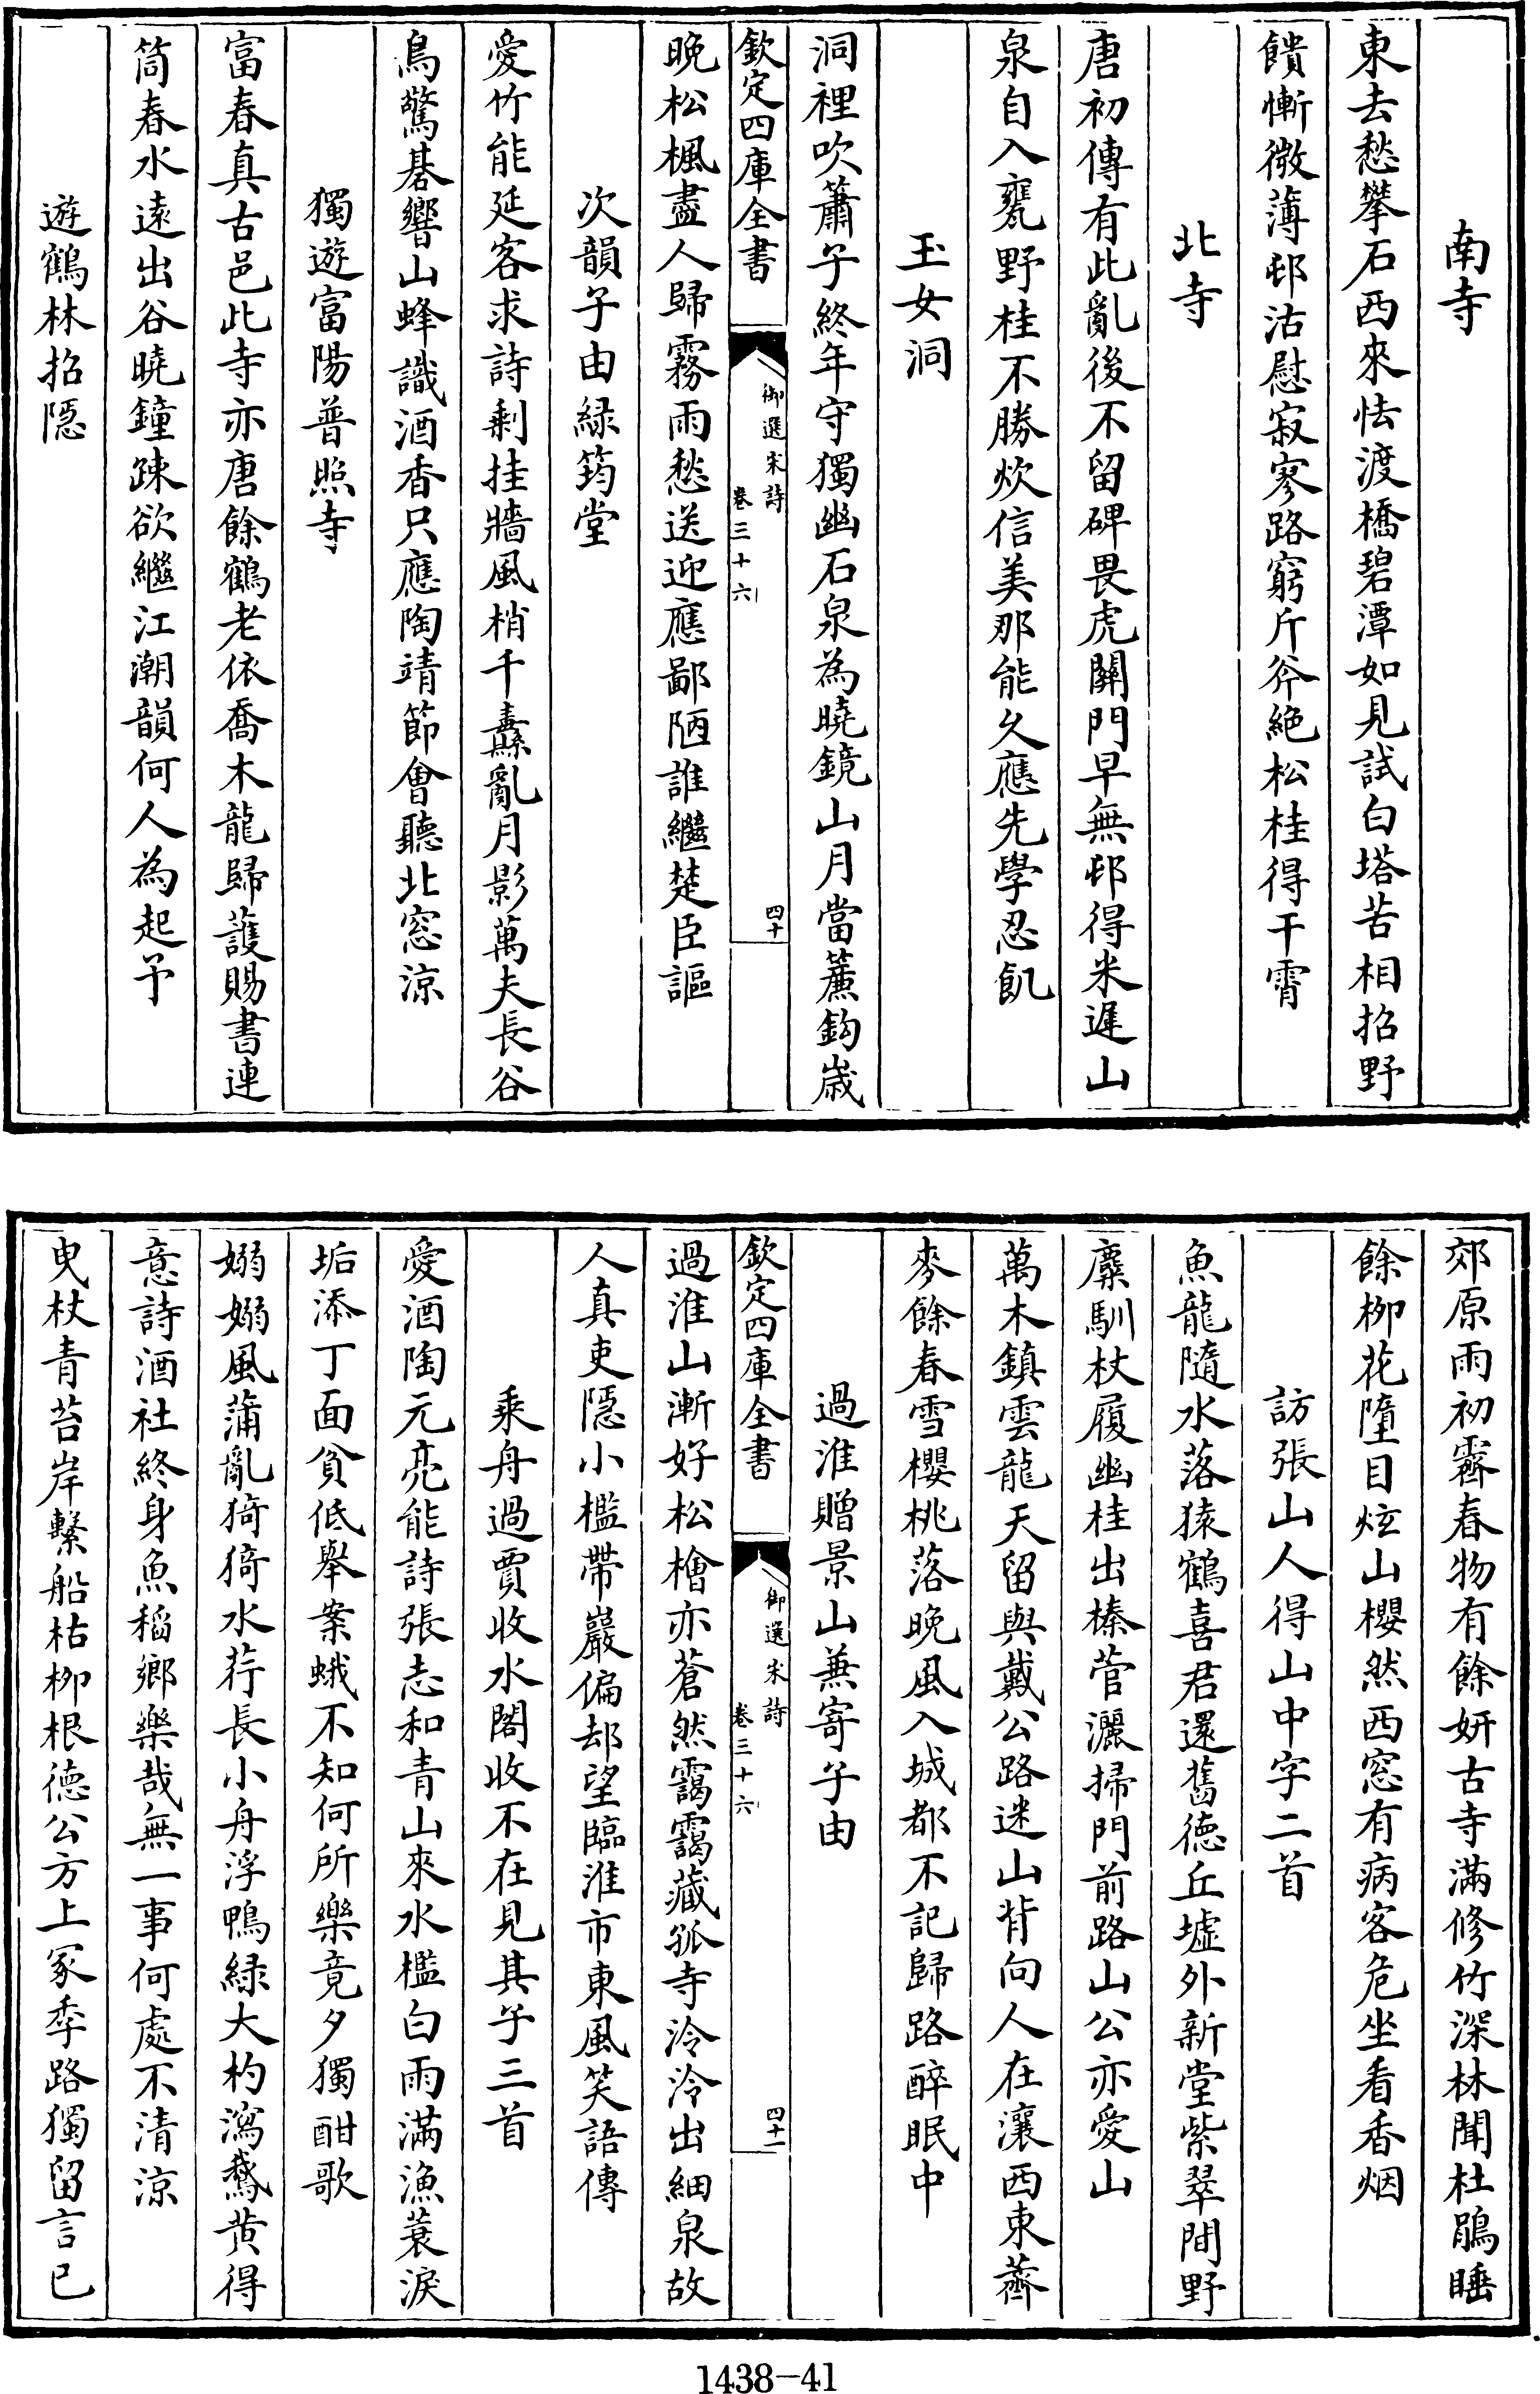 南寺
東去愁攀石西來怯渡橋碧潭如見試白塔苦相招野
饋慚微薄邨沽慰寂寥路窮斤斧絶松桂得干霄
北寺
唐初傳有此亂後不留碑畏虎關門早無邨得米遲山
泉自入甕野桂不勝炊信美那能久應先學忍飢
玉女洞
洞裡吹簫子終年守獨幽石泉為曉鏡山月當簾鈎歲
欽定四庫全書
御選宋詩
卷三十六
四十
晚松楓盡人歸霧雨愁送迎應鄙陋誰繼楚臣謳
次韻子由緑筠堂
愛竹能延客求詩剩挂牆風梢千纛亂月影萬夫長谷
鳥驚棊響山蜂識酒香只應陶靖節會聽北窓涼
獨遊富陽普照寺
富春真古邑此寺亦唐餘鶴老依喬木龍歸護賜書連
筒春水遠出谷曉鐘疎欲繼江潮韻何人為起予
遊鶴林招隠
郊原雨初霽春物有餘妍古寺滿修竹深林聞杜鵑睡
餘柳花墮目炫山櫻然西窓有病客危坐看香烟
訪張山人得山中字二首
魚龍隨水落猿鶴喜君還舊徳丘墟外新堂紫翠間野
麋馴杖履幽桂出榛菅灑掃門前路山公亦愛山
萬木鎮雲龍天留與戴公路迷山背向人在瀼西東薺
麥餘春雪櫻桃落晚風入城都不記歸路醉眠中
過淮贈景山兼寄子由
欽定四庫全書
御選宋詩
卷三十六
四十一
過淮山漸好松檜亦蒼然靄靄藏孤寺泠泠出細泉故
人真吏隠小檻帶巖偏却望臨淮市東風笑語傳
乘舟過賈收水閣收不在見其子三首
愛酒陶元亮能詩張志和青山來水檻白雨滿漁蓑淚
垢添丁面貧低舉案蛾不知何所樂竟夕獨酣歌
嫋嫋風蒲亂猗猗水荇長小舟浮鴨緑大杓瀉鵞黄得
意詩酒社終身魚稻鄉樂哉無一事何處不清涼
曳杖青苔岸繫船枯柳根徳公方上冢季路獨留言已
1438-41